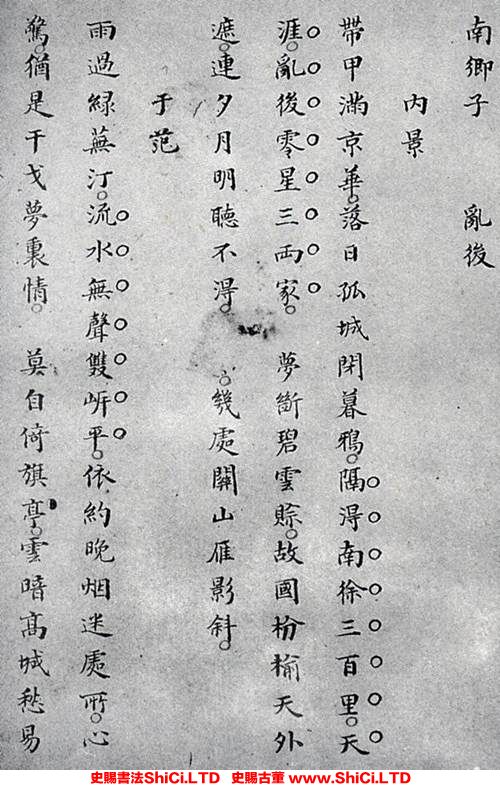 南鄉子　亂後
內景
帶甲滿京華。落日孤城閉暮鴉。隔淂南徐三百里。天
涯。亂後零星三兩家。　夢斷碧雲賖。故國枌榆天外
遮。連夕月明聽不淂。　幾處關山雁影斜。
于范
雨過綠蕪汀。流水無聲雙岍平。依約晚烟迷處所。心
驚。猶是干戈夢裏情。　莫自倚旗亭。雲暗高城愁易
史賜書法ShiCi.LTD　史賜古董 www.ShiCi.LTD